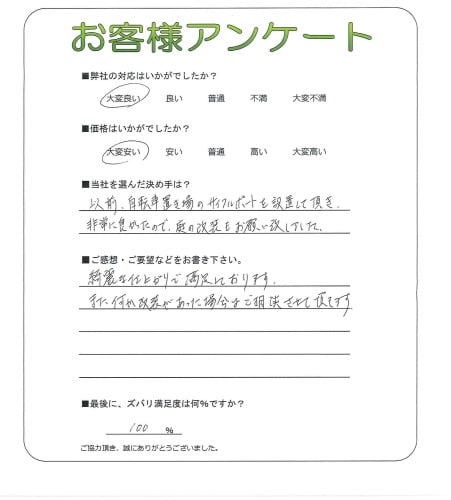 お客様アンケート
■弊社の対応はいかがでしたか?
大変良い 良い 普通 不満 大変不満
■価格はいかがでしたか?
大変安い 安い 普通 高い 大変高い
■当社を選んだ決め手は?
以前、自転車置き場のサイクルポートを設置して頂き、
非常に良かったので、庭の改装もお願い致しました。
■ご感想・ご要望などをお書き下さい。
綺麗な仕上がりで満足しております。
また何か改装があった場合はご相談させて頂きます
■最後に、ズバリ満足度は何%ですか?
100 %
ご協力頂き、誠にありがとうございました。